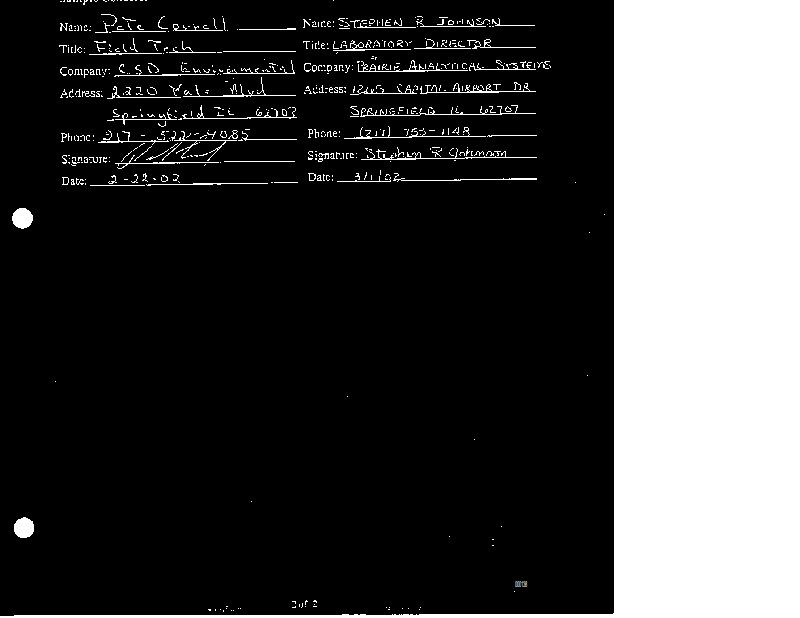 Name: Pete Correll
Title: Field Tech
Company: CSD Environmental
Address: 2220 Yale Blvd
Springfield IL 62703
Phone: 217-522-4085
Signature:
Date: 2-22-02
Name: STEPHEN R JOHNSON
Title: LABORATORY DIRECTOR
Company: PRAIRIE ANALYTICAL SYSTEMS
Address: CAPITAL AIRPORT DR
SPRINGFIELD IL 62707
Phone: (217) 753-1148
Signature: Stephen R Johnson
Date: 3/1/02
2 of 2